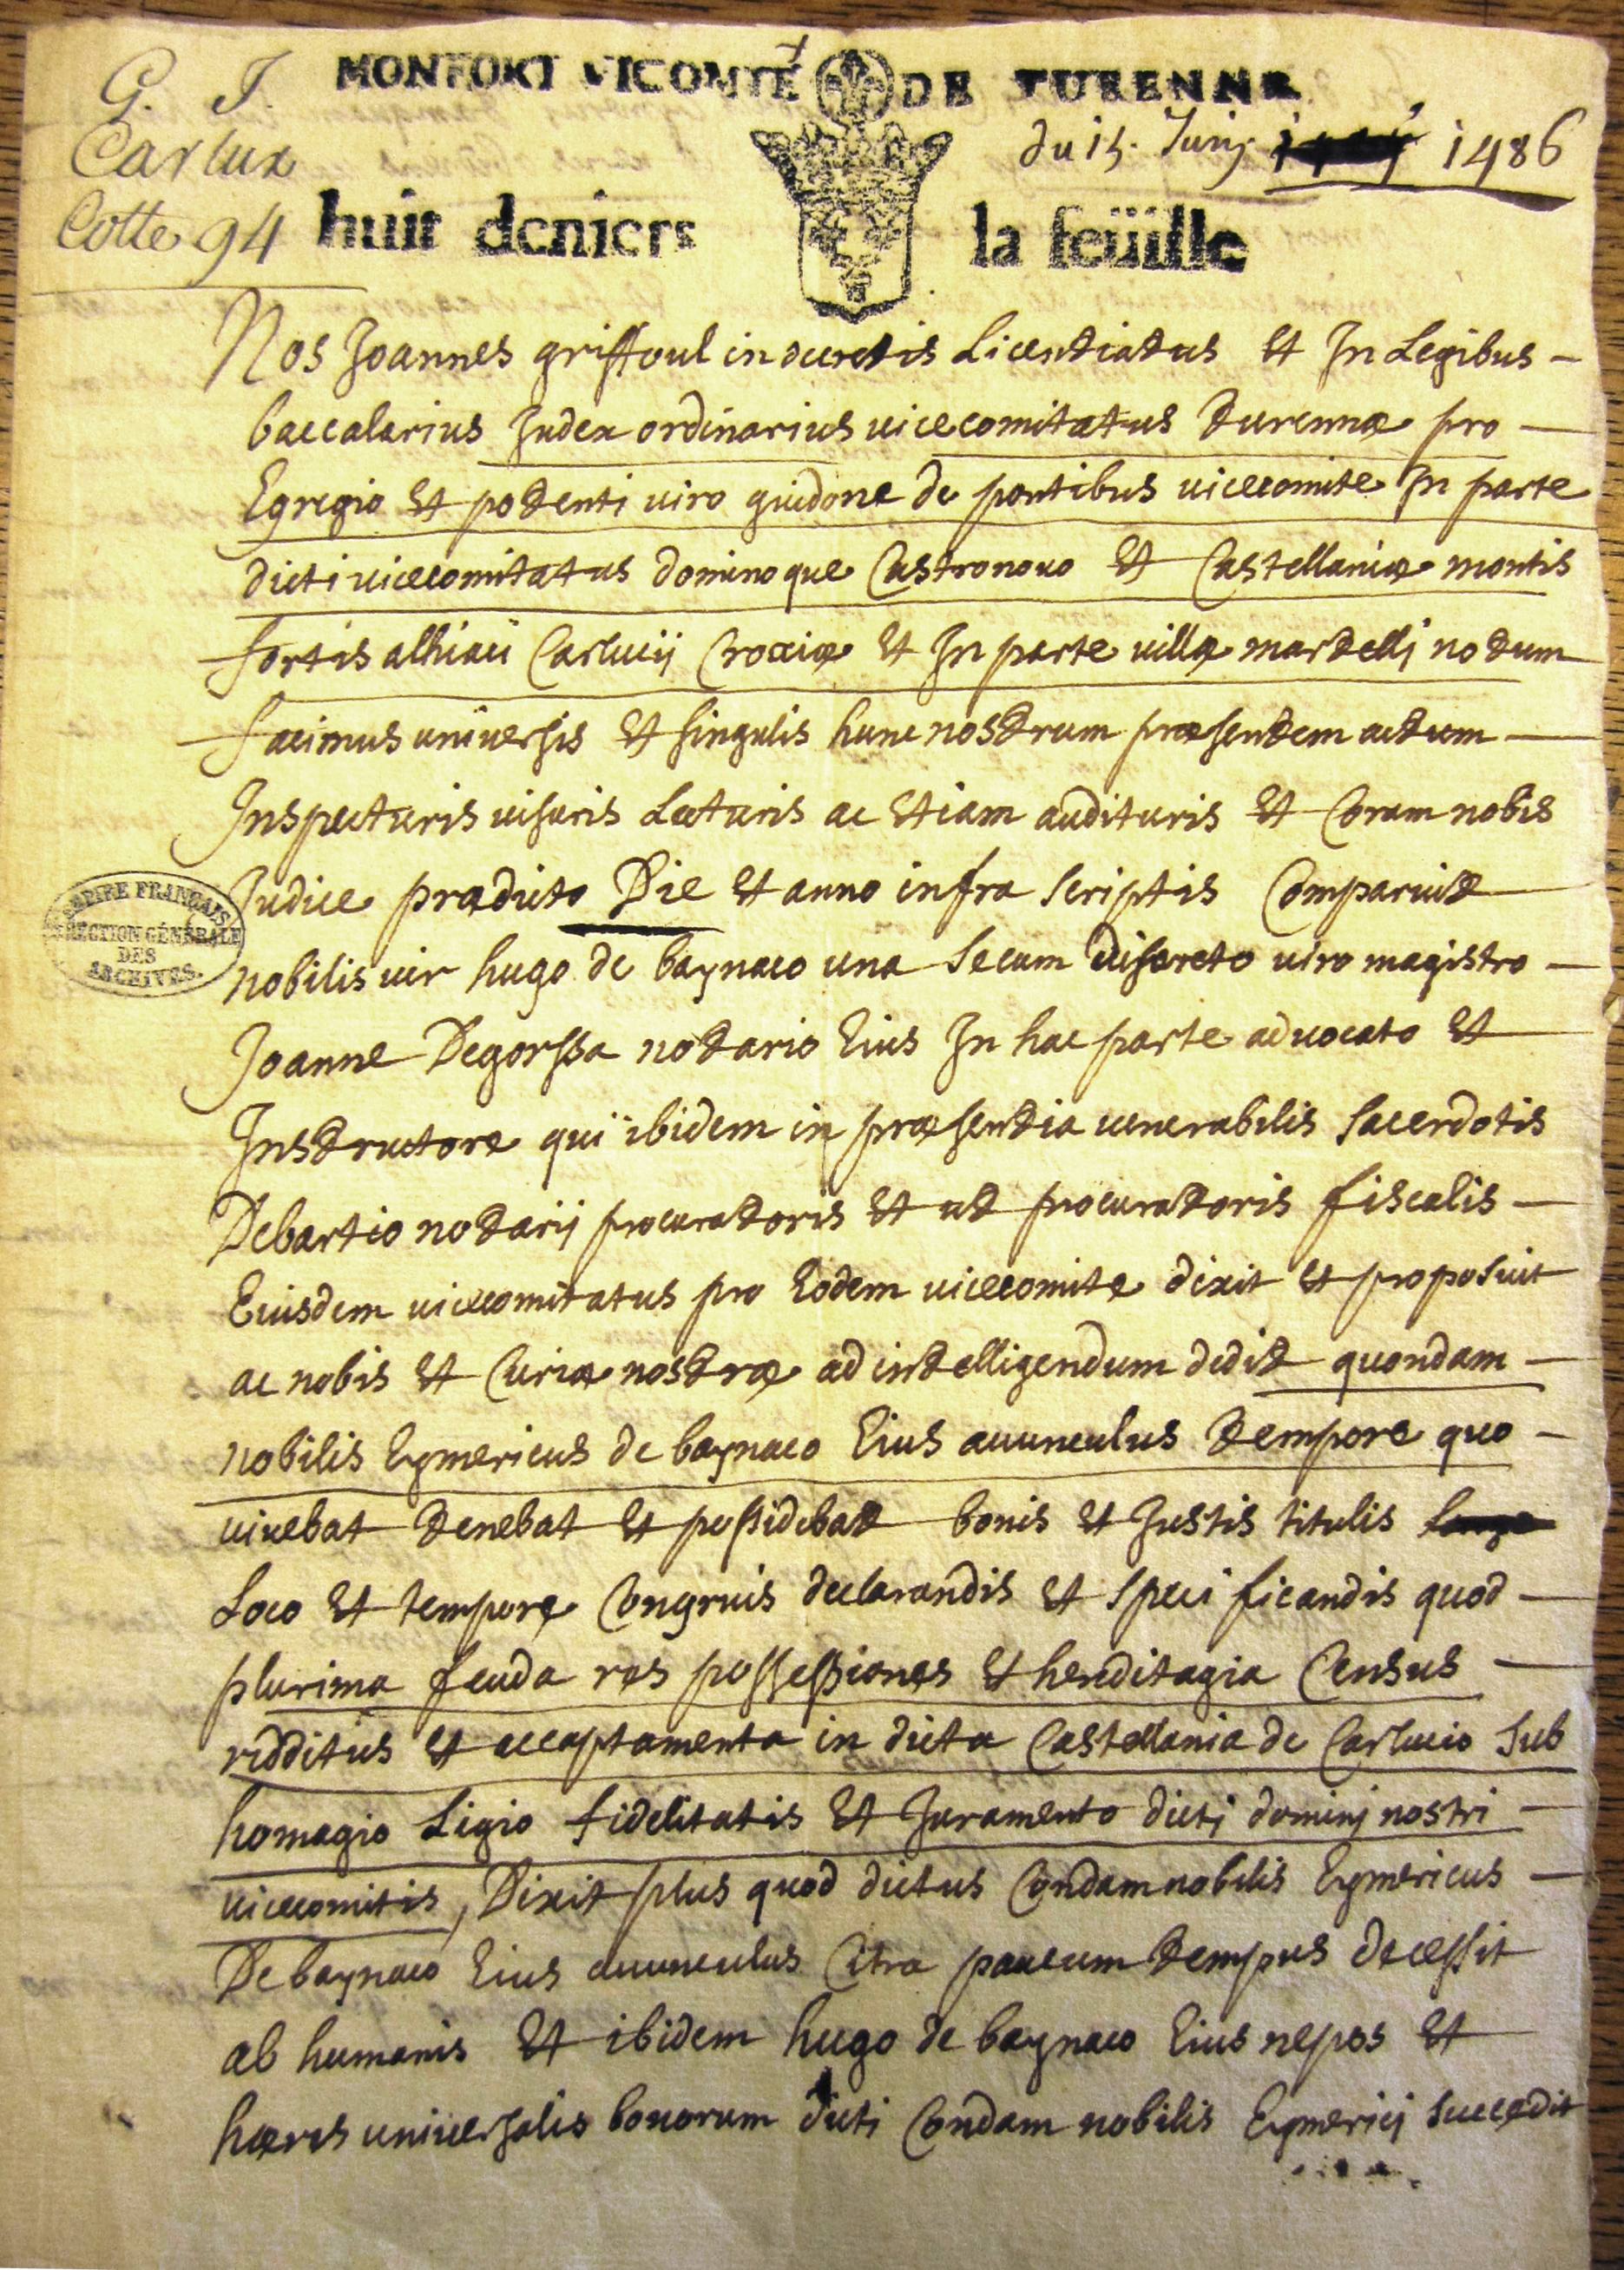 G. J.
Carlux
Cotte 94
MONFORT VICOMTÉ DE TURENNE
du 15. Junij 1486
huit deniers la feüille
Nos Joannes griffoul in decretis Licentiatus Et In Legibus
baccalarius Judex ordinarius vicecomitatus turennæ pro
Egregio Et potenti viro guidone de pontibus vicecomite In parte
dicti vicecomitatus dominoque Castronovo Et Castellaniæ montis
fortis alhiaci Carlucij Croxiæ Et In parte villæ martellj notum
facimus universis Et singulis hunc nostrum præsentem actum
Inspecturis visuris Lecturis ac Etiam audituris Et Coram nobis
Judice prædicto Die Et anno infra scriptis Comparuit
nobilis vir hugo de baynaco una secum discreto viro magistro
Joanne Degorssa notario Eius In hac parte advocato Et
Instructore qui ibidem in præsentia venerabilis sacerdotis
Debartio notarij procuratoris Et ut procuratoris fiscalis
Eiusdem vicecomitatus pro Eodem vicecomite dixit Et proposuit
ac nobis Et Curiæ nostræ ad intelligendum dedit quondam
nobilis Eymericus de baynaco Eius avunculus tempore quo
vivebat tenebat Et possidebat bonis Et Justis titulis
Loco Et tempore Congruis declarandis Et specificandis quod
plurima feuda res possessiones Et hereditagia Census
redditus Et accaptamenta in dicta Castellania de Carlucio sub
homagio Ligio fidelitatis Et Juramento dictj dominj nostri
vicecomitis, Dixit plus quod dictus Condam nobilis Eymericus
De baynaco Eius avunculus Citra paucum tempus decessit
ab humanis Et ibidem hugo de baynaco Eius nepos Et
hæres universalis bonorum dicti Condam nobilis Eymericj succedit
EMPIRE FRANÇAIS
DIRECTION GÉNÉRALE
DES
ARCHIVES.